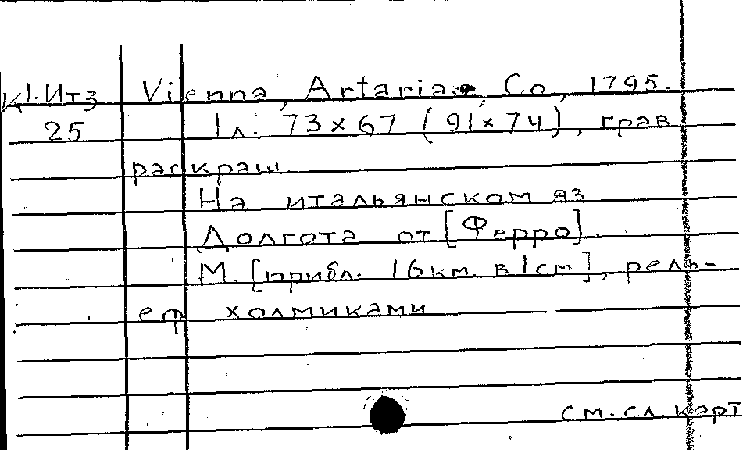 К1.Ит3 Vienna, Artaria e Co, 1795.
25 1 л. 73 x 67 (91 x 74), грав
раскраш
На итальянском яз
Долгота от [Ферро].
М. [прибл. 16 км. в 1 см], рель-
еф холмиками
см. сл. карт